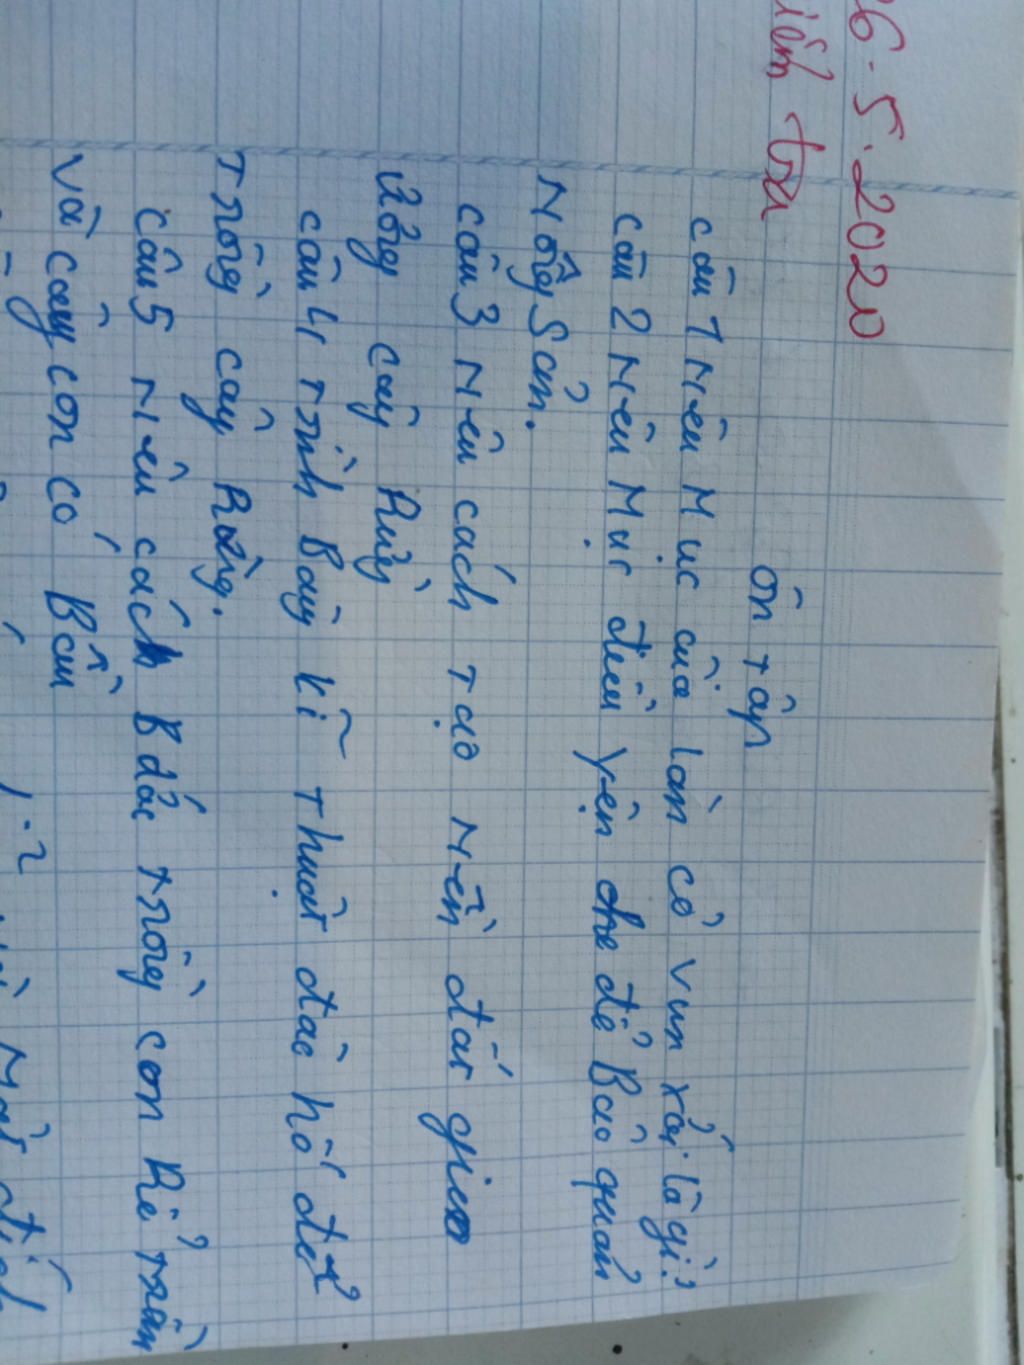 26.5.2020
kiểm tra
ôn tập
câu 1 Nêu Mục của làm cỏ vun xới là gì?
câu 2 Nêu Mục điều yện che để Bảo quản
Nông Sản.
câu 3 Nêu cách tạo nền đất gieo
ương cây Rừng
câu 4 trình Bày kĩ thuật đào hố để
trồng cây Rừng.
câu 5 nêu các Bước trồng con Rể trần
và cây con có Bầu